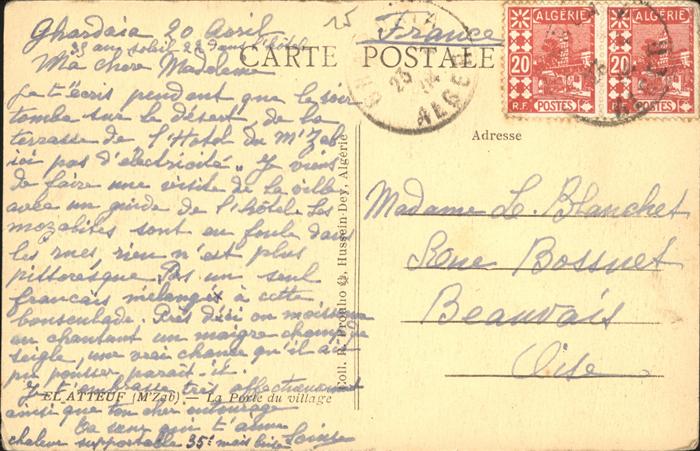 Ghardaïa 20 Avril
35 au soleil 22 dans l'hôtel
Ma chère Madeleine
Je t'écris pendant que le soir
tombe sur le désert, de la
terrasse de l'Hotel du M'Zab
ici pas d'électricité. Je viens
de faire une visite de la ville
avec un guide de l'hôtel les
mozabites sont en foule dans
les rues, rien n'est plus
pittoresque. Pas un seul
français mélangé à cette
bousculade. Près d'ici on moissonne
en chantant un maigre champ de
seigle, une vraie chance qu'il ait
pu pousser, parait-il.
Je t'embrasse très affectueusement
ainsi que ton cher entourage
Ta sœur qui t'aime
chaleur supportable 35° mais Louise
EL ATTEUF (M'Zab) — La Porte du village
Coll. R. Prouho, Hussein-Dey, Algérie
15
France
CARTE POSTALE
GHARDAIA
23
ALGER
ALGÉRIE
20
R.F. POSTES
ALGÉRIE
20
R.F. POSTES
Adresse
Madame Le Blanchet
Rue Bossuet
Beauvais
Oise